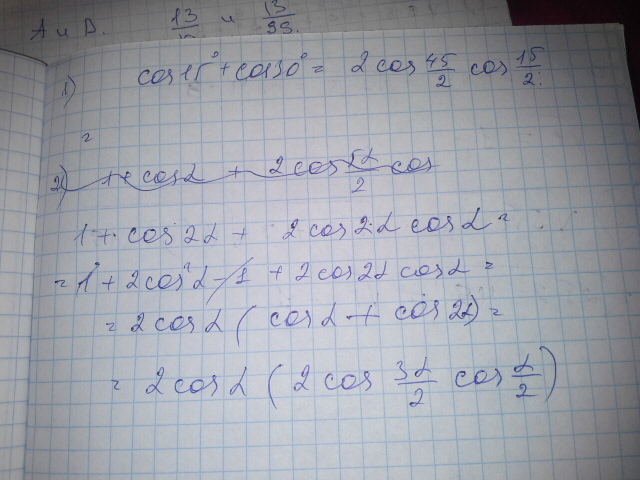 А и В. 13/ и 13/99.
1) cos 15° + cos 30° = 2 cos 45/2 cos 15/2.
=
2) 1 + cos α + 2 cos 5α/2 cos
1 + cos 2α + 2 cos 2α cos α =
= 1 + 2 cos² α - 1 + 2 cos 2α cos α =
= 2 cos α ( cos α + cos 2α) =
= 2 cos α ( 2 cos 3α/2 cos α/2 )